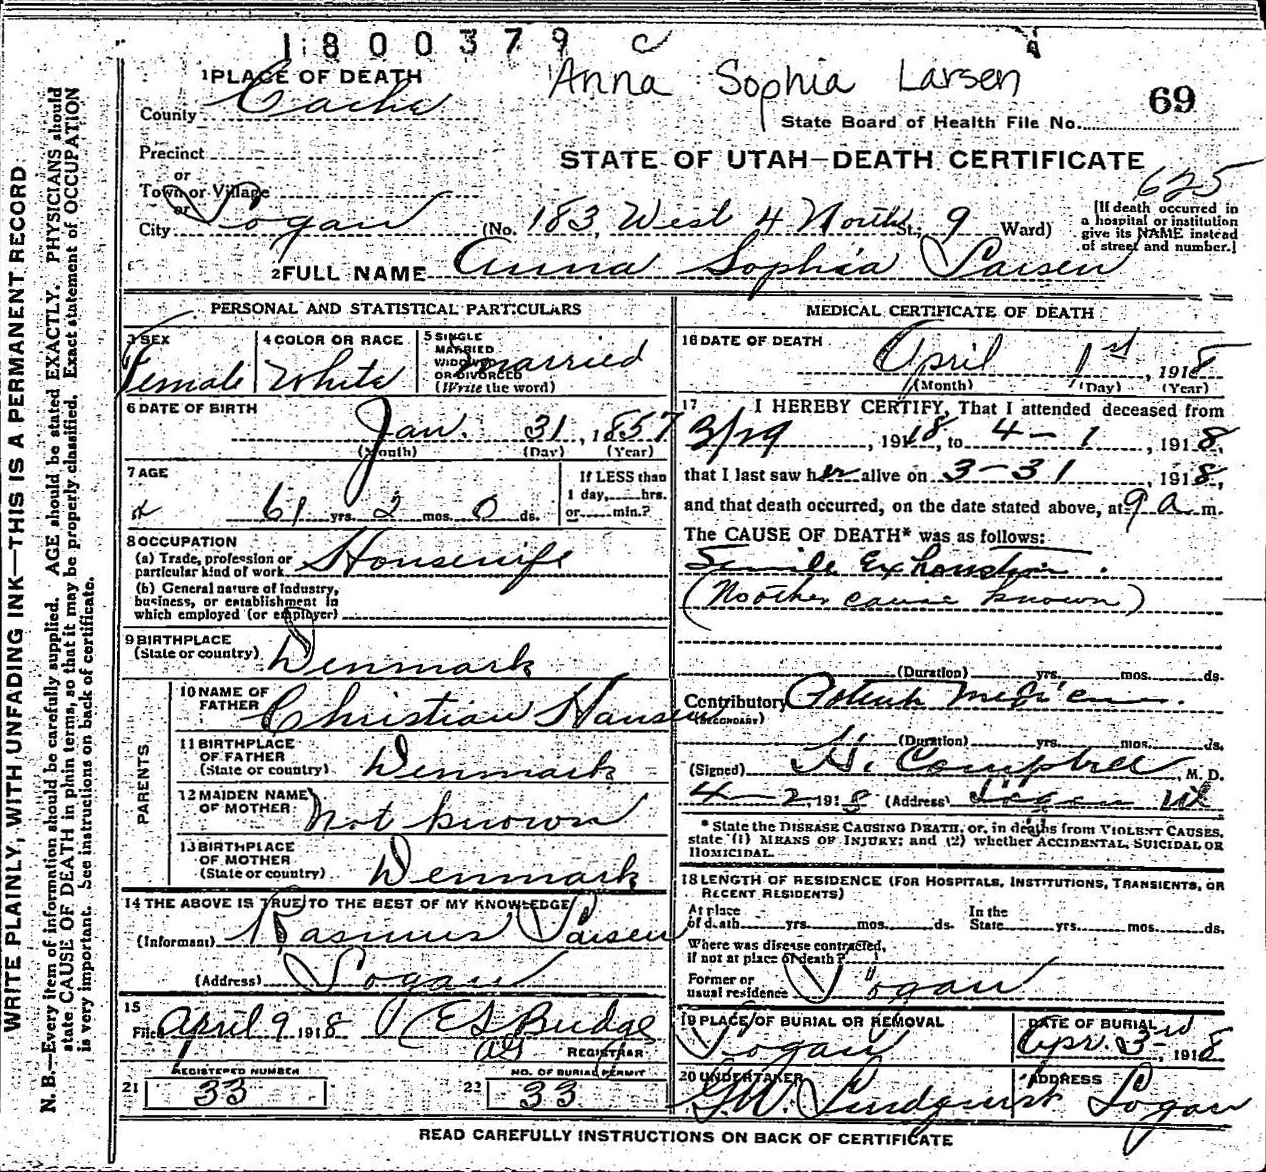 1800379 c
Anna Sophia Larsen
1 PLACE OF DEATH
County Cache
69
State Board of Health File No.
Precinct
or
Town or Village
or
City Logan
STATE OF UTAH—DEATH CERTIFICATE
625
(No. 183, West 4 North St.; 9 Ward)
[If death occurred in
a hospital or institution
give its NAME instead
of street and number.]
2 FULL NAME Anna Sophia Larsen
PERSONAL AND STATISTICAL PARTICULARS
3 SEX
Female
4 COLOR OR RACE
White
5 SINGLE
MARRIED
WIDOWED
OR DIVORCED
(Write the word)
married
6 DATE OF BIRTH
Jan. 31, 1857
(Month) (Day) (Year)
7 AGE
61 yrs. 2 mos. 0 ds.
If LESS than
1 day, hrs.
or min.?
8 OCCUPATION
(a) Trade, profession or
particular kind of work Housewife
(b) General nature of industry,
business, or establishment in
which employed (or employer)
9 BIRTHPLACE
(State or country) Denmark
PARENTS
10 NAME OF
FATHER Christian Hansen
11 BIRTHPLACE
OF FATHER
(State or country) Denmark
12 MAIDEN NAME
OF MOTHER Not known
13 BIRTHPLACE
OF MOTHER
(State or country) Denmark
14 THE ABOVE IS TRUE TO THE BEST OF MY KNOWLEDGE
(Informant) Rasmus Larsen
(Address) Logan
15
Filed April 9 1918 E S Budge
REGISTRAR
REGISTERED NUMBER
21 33
NO. OF BURIAL PERMIT
22 33
MEDICAL CERTIFICATE OF DEATH
16 DATE OF DEATH
April 1st, 1918
(Month) (Day) (Year)
17 I HEREBY CERTIFY, That I attended deceased from
3/29, 1918, to 4-1, 1918,
that I last saw her alive on 3-31, 1918,
and that death occurred, on the date stated above, at 9 a m.
The CAUSE OF DEATH* was as follows:
Senile Exhaustion.
(No other cause known)
(Duration) yrs. mos. ds.
Contributory
(SECONDARY)
(Duration) yrs. mos. ds.
(Signed) H. Campbell, M. D.
4-2, 1918 (Address) Logan Ut
* State the DISEASE CAUSING DEATH, or, in deaths from VIOLENT CAUSES,
state (1) MEANS OF INJURY; and (2) whether ACCIDENTAL, SUICIDAL OR
HOMICIDAL.
18 LENGTH OF RESIDENCE (FOR HOSPITALS, INSTITUTIONS, TRANSIENTS, OR
RECENT RESIDENTS)
At place
of death yrs. mos. ds.
In the
State yrs. mos. ds.
Where was disease contracted,
if not at place of death?
Former or
usual residence Logan
19 PLACE OF BURIAL OR REMOVAL
Logan
DATE OF BURIAL
Apr. 3rd, 1918
20 UNDERTAKER
G.W. Lindquist
ADDRESS
Logan
READ CAREFULLY INSTRUCTIONS ON BACK OF CERTIFICATE
WRITE PLAINLY, WITH UNFADING INK—THIS IS A PERMANENT RECORD
N. B.—Every item of information should be carefully supplied. AGE should be stated EXACTLY. PHYSICIANS should
state CAUSE OF DEATH in plain terms, so that it may be properly classified. Exact statement of OCCUPATION
is very important. See instructions on back of certificate.